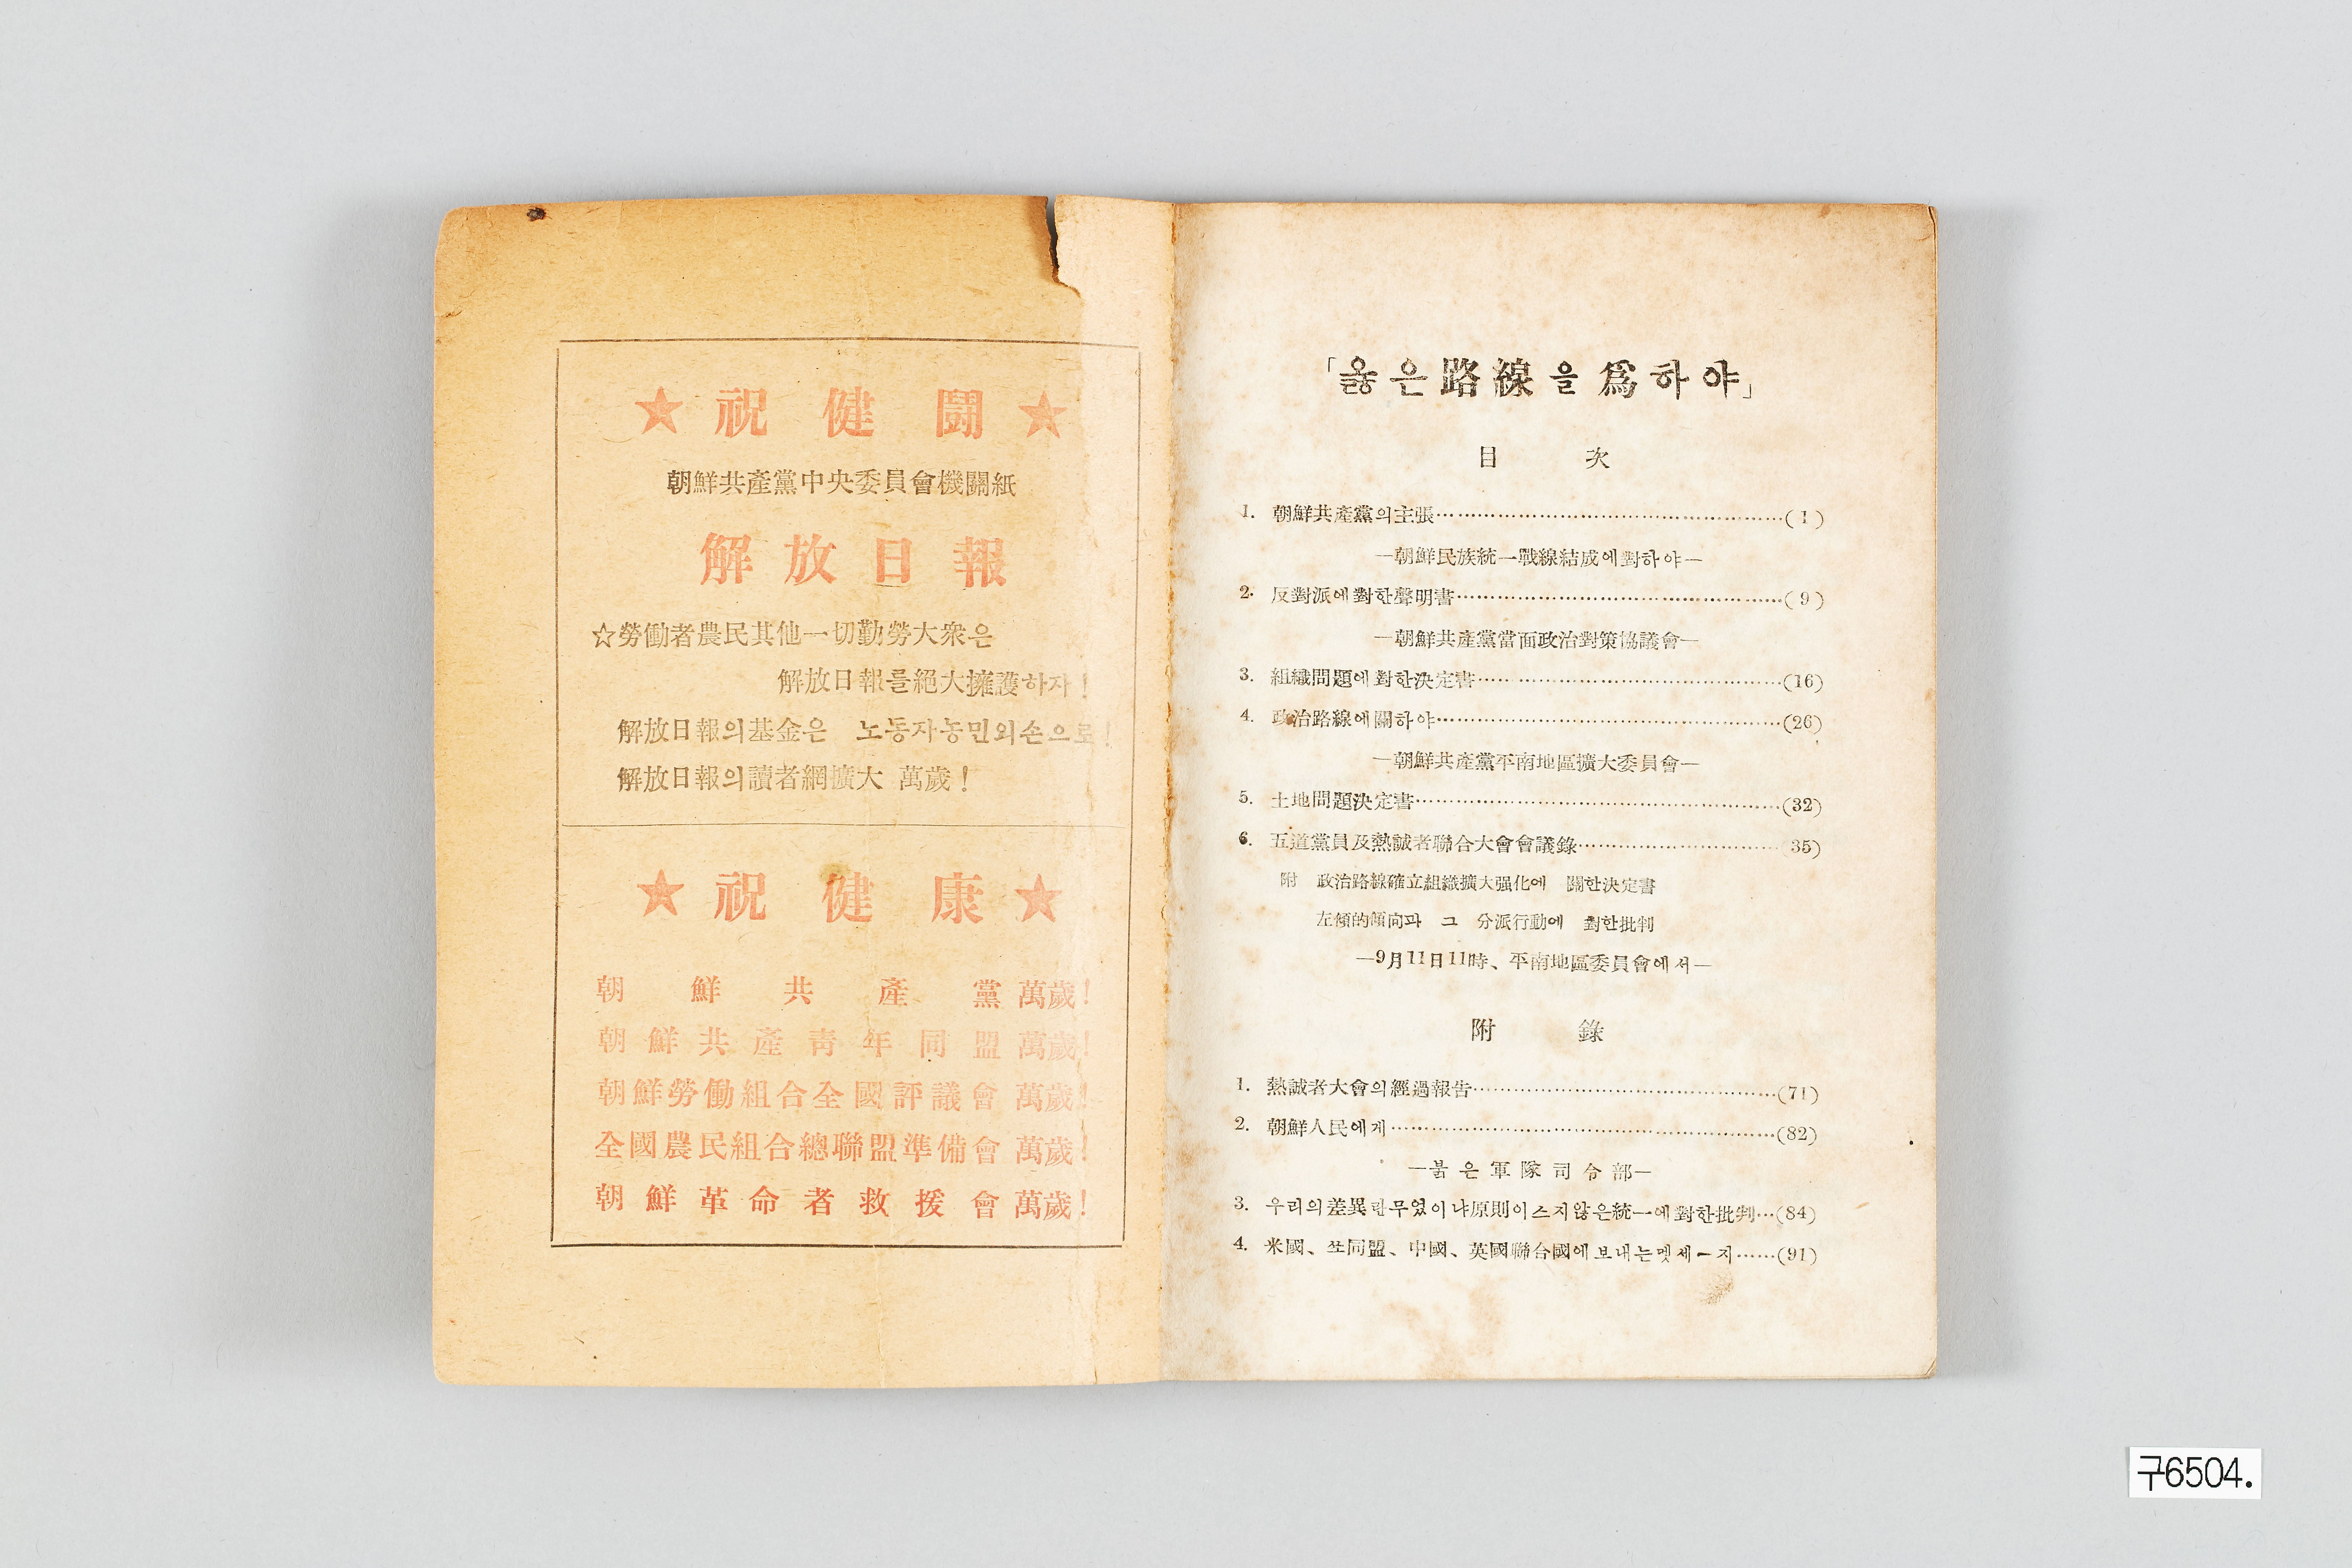 ★ 祝 健 鬪 ★
朝鮮共產黨中央委員會機關紙
解 放 日 報
☆勞働者農民其他一切勤勞大衆은
解放日報를絕大擁護하자!
解放日報의基金은 노동자농민의손으로!
解放日報의讀者網擴大 萬歲!
★ 祝 健 康 ★
朝 鮮 共 產 黨 萬歲!
朝 鮮 共 產 靑 年 同 盟 萬歲!
朝鮮勞働組合全國評議會 萬歲!
全國農民組合總聯盟準備會 萬歲!
朝 鮮 革 命 者 救 援 會 萬歲!
「옳은路線을爲하야」
目 次
1. 朝鮮共產黨의主張……………………………………………(1)
—朝鮮民族統一戰線結成에對하야—
2. 反對派에對한聲明書…………………………………………(9)
—朝鮮共產黨當面政治對策協議會—
3. 組織問題에對한決定書………………………………………(16)
4. 政治路線에關하야……………………………………………(26)
—朝鮮共產黨平南地區擴大委員會—
5. 土地問題決定書………………………………………………(32)
6. 五道黨員及熱誠者聯合大會會議錄…………………………(35)
附 政治路線確立組織擴大强化에 關한決定書
左傾的傾向과 그 分派行動에 對한批判
—9月11日11時、平南地區委員會에서—
附 錄
1. 熱誠者大會의經過報告………………………………………(71)
2. 朝鮮人民에게…………………………………………………(82)
—붉은軍隊司令部—
3. 우리의差異란무엇이냐原則이스지않은統一에對한批判…(84)
4. 米國、쏘同盟、中國、英國聯合國에보내는멧세ー지……(91)
구6504.